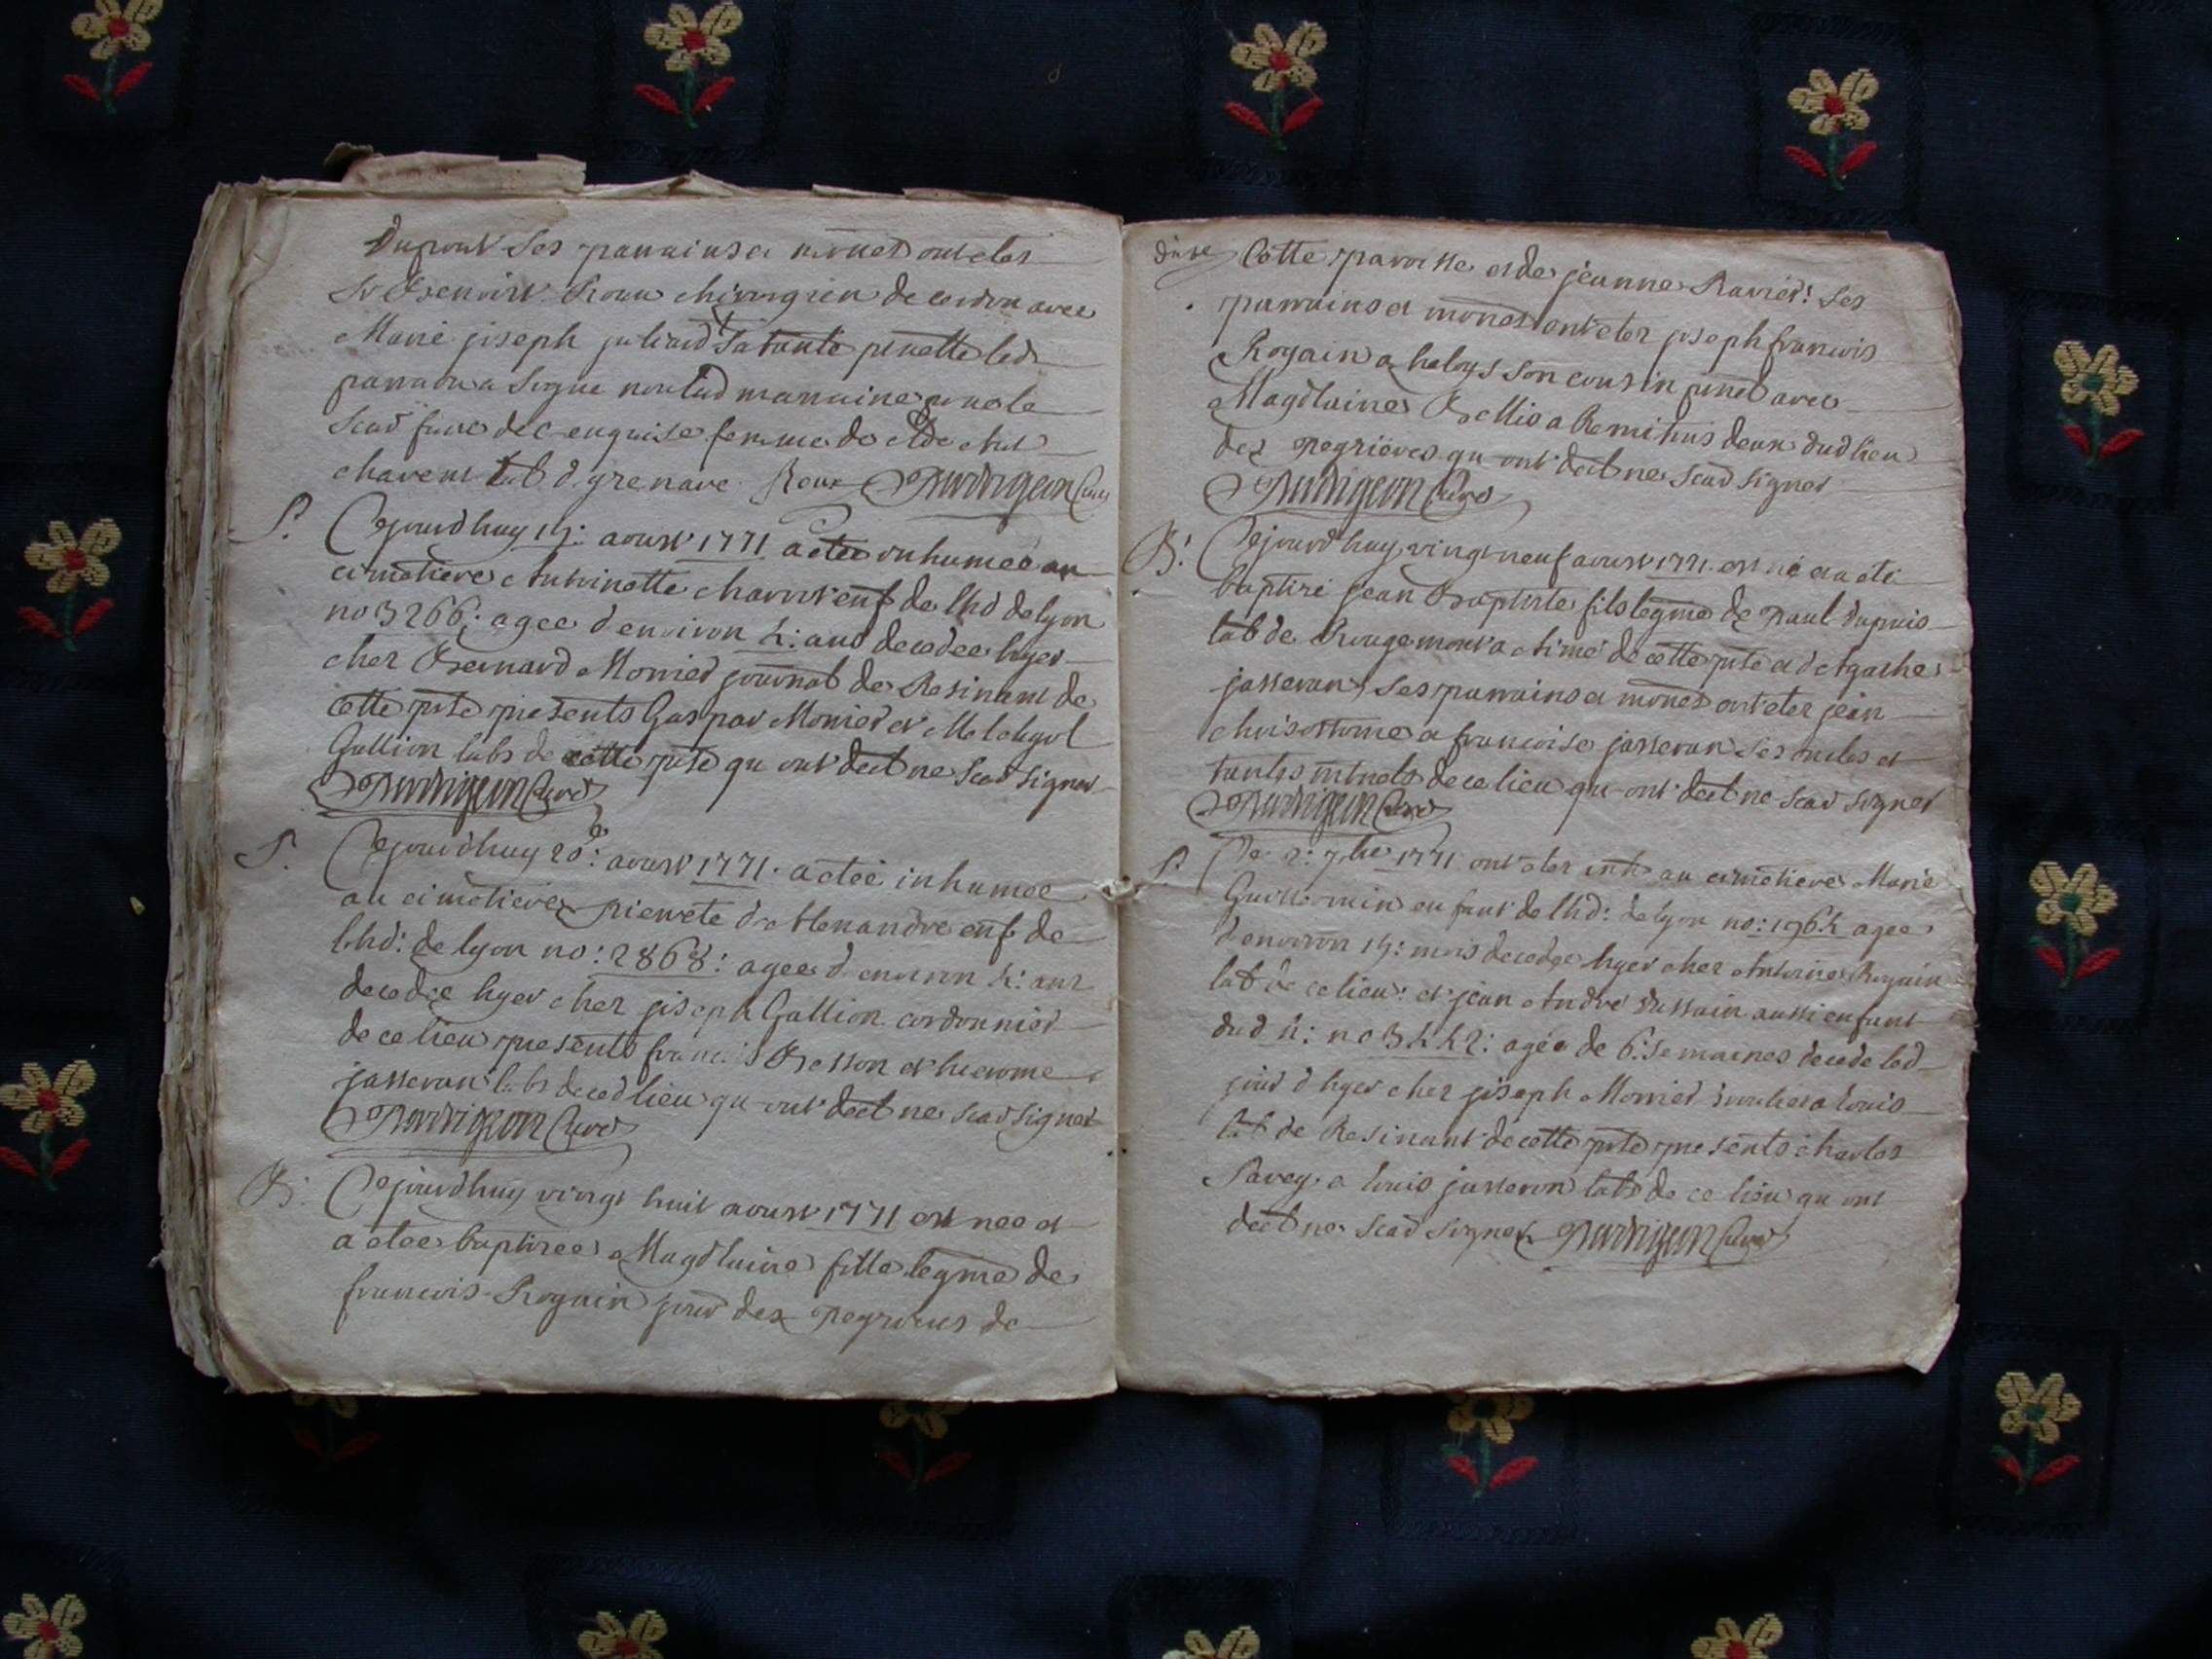 Dupont Ses parrains et mones ont etes
Sr Benoist Roux chirurgien de cordon avec
Marie joseph juliard Sa tante penette led
parrain a Signe non lad marraine
Scad femme de et de
chavent lab d grenave Roux Purdrigeon Cure
S. Cejourdhuy 14: aoust 1771 a etee inhumee au
cimetiere Antoinette charvet enf de lhd de lyon
no 3266: agee d environ 4: ans decedee hyer
chez Bernard Monier journal de Resinant de
cette pste presents Gaspar Monier et
Gullion labs de cette pste qu ont declt ne Scad signer
Purdrigeon Cure
S. Cejourdhuy 20e: aoust 1771. a etee inhumee
au cimetiere pierrete d Alexandre enf de
lhd: de lyon no: 2868: agee d environ 4: ans
decedee hyer chez joseph Gullion cordonnier
de ce lieu presents francois Besson et hierome
jasseran labs de ced lieu qu ont declt ne scad signer
Purdrigeon Cure
B. Cejourdhuy vingt huit aoust 1771 est nee et
a etee baptisee Magdlaine fille legme de
francois Roguin jour des de
cette parroisse et de jeanne Ravier: Ses
parrains et mones ont etes joseph francois
Roguin a haloys Son cousin avec
Magdlaine Bellio a deux dud lieu
des qu ont declt ne scad signer
Purdrigeon Cure
B. Cejourdhuy vingt neuf aoust 1771 est né et a été
baptisé jean Baptiste fils legme de paul dupuis
lab de Rougemont de cette pste et d Agathe
jasseran, Ses parrains et mones ont etes jean
chrisostome a francoise jasseran Ses oncles et
tantes de ce lieu qu ont declt ne scad signer
Purdrigeon Cure
S. Ce 2: 7bre 1771 ont etes inh au cimetiere Marie
Guillermin enfant de lhd: de lyon no: 1964 agee
d environ 14: mois decedee hyer chez Antoine Roguin
lab de ce lieu: et jean Andre Dussain aussi enfant
dud h: no 3442: agée de 6: Semaines decede led
jour d hyer chez joseph Monier a louis
lab de Resinant de cette pste presents charles
Savey a louis jasseron labs de ce lieu qu ont
declt ne scad signer Purdrigeon Cure